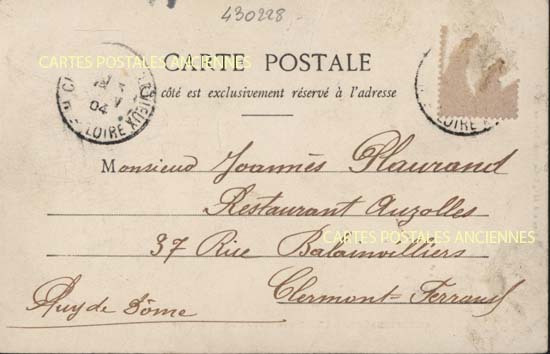 430228
CARTES POSTALES ANCIENNES
CARTE POSTALE
côté est exclusivement réservé à l'adresse
04
LOIRE
LOIRE
Monsieur Joannès Plaurand
Restaurant Auzolles
CARTES POSTALES ANCIENNES
37 Rue Balainvilliers
Clermont-Ferrand
Puy de Dôme